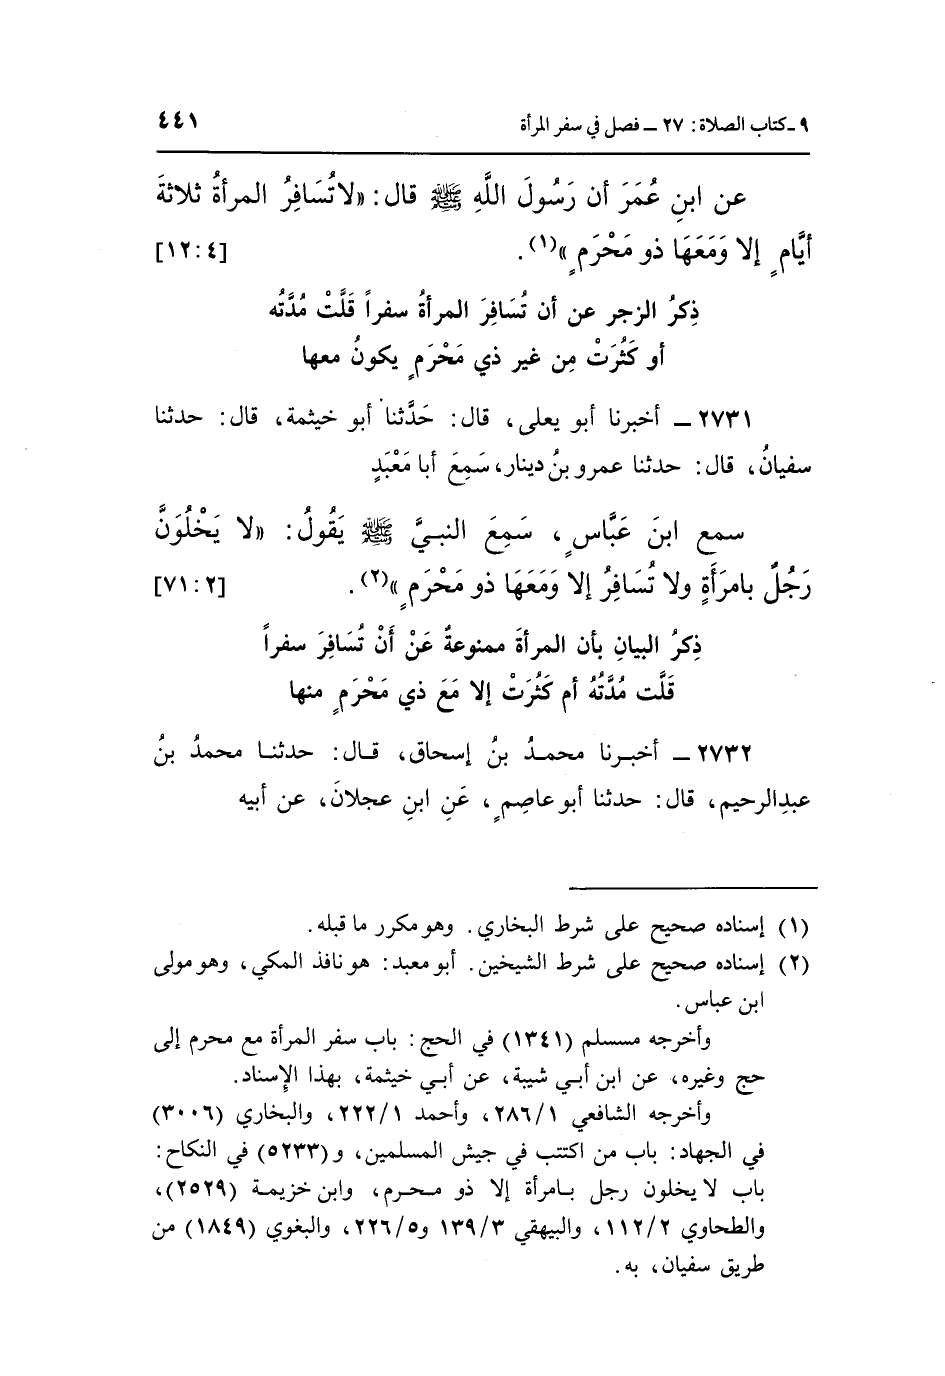 ٩ ـ كتاب الصلاة : ٢٧ ــ فصل في سفر المرأة ٤٤١
عن ابنِ عُمَرَ أن رَسُولَ اللَّهِ ﷺ قال : «لاتُسَافِرُ المرأةُ ثلاثةَ
أيَّامٍ إلا وَمَعَهَا ذو مَحْرَمٍ»(١). [١٢:٤]
ذِكرُ الزجر عن أن تُسَافِرَ المرأةُ سفراً قَلَّتْ مُدَّتُه
أو كَثُرَتْ مِن غير ذي مَحْرَمٍ يكونُ معها
٢٧٣١ ــ أخبرنا أبو يعلى، قال : حَدَّثنا أبو خيثمة، قال : حدثنا
سفيانُ، قال : حدثنا عمرو بنُ دينار، سَمِعَ أبا مَعْبَدٍ
سمع ابنَ عَبَّاسٍ، سَمِعَ النبيَّ ﷺ يَقُولُ : «لا يَخْلُوَنَّ
رَجُلٌ بامرَأَةٍ ولا تُسَافِرُ إلا وَمَعَهَا ذو مَحْرَمٍ»(٢). [٧١:٢]
ذِكرُ البيانِ بأن المرأةَ ممنوعةٌ عَنْ أَنْ تُسَافِرَ سفراً
قَلَّت مُدَّتُهُ أم كَثُرَتْ إلا مَعَ ذي مَحْرَمٍ منها
٢٧٣٢ ــ أخبرنا محمدُ بنُ إسحاق، قال : حدثنا محمدُ بنُ
عبدِالرحيم، قال : حدثنا أبو عاصِمٍ، عَنِ ابنِ عجلانَ، عن أبيه
(١) إسناده صحيح على شرط البخاري. وهو مكرر ما قبله.
(٢) إسناده صحيح على شرط الشيخين. أبو معبد : هو نافذ المكي، وهو مولى
ابن عباس.
وأخرجه مسلم (١٣٤١) في الحج : باب سفر المرأة مع محرم إلى
حج وغيره، عن ابن أبي شيبة، عن أبي خيثمة، بهذا الإسناد.
وأخرجه الشافعي ٢٨٦/١، وأحمد ٢٢٢/١، والبخاري (٣٠٠٦)
في الجهاد : باب من اكتتب في جيش المسلمين، و (٥٢٣٣) في النكاح :
باب لا يخلون رجل بامرأة إلا ذو محرم، وابن خزيمة (٢٥٢٩)،
والطحاوي ١١٢/٢، والبيهقي ١٣٩/٣ و٢٢٦/٥، والبغوي (١٨٤٩) من
طريق سفيان، به.